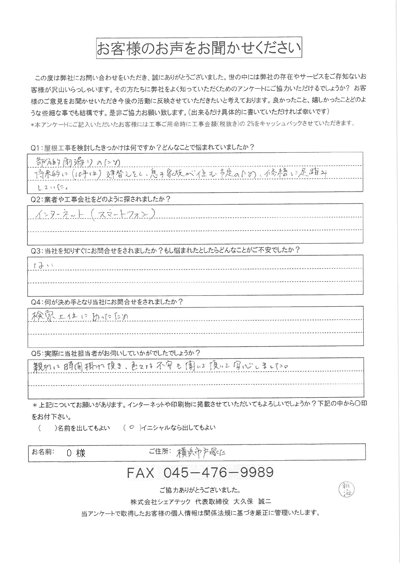 お客様のお声をお聞かせください
この度は弊社にお問い合わせをいただき、誠にありがとうございました。世の中には弊社の存在やサービスをご存知ないお
客様が沢山いらっしゃいます。その方たちに弊社をよく知っていただくためのアンケートにご協力いただけるでしょうか？お客
様のご意見をお聞かせいただき今後の活動に反映させていただきたいと考えております。良かったこと、嬉しかったことどのよう
な些細な事でも結構です。是非ご協力お願い致します。(出来るだけ具体的に書いていただければ幸いです)
*本アンケートにご記入いただいたお客様には工事ご用命時に工事金額(税抜き)の2%をキャッシュバックさせていただきます。
Q1：屋根工事を検討したきっかけは何ですか？どんなことで悩まれていましたか？
部分的雨漏りのため
していた。
Q2：業者や工事会社をどのように探されましたか？
インターネット(スマートフォン)
Q3：当社を知りすぐにお問合せをされましたか？もし悩まれたとしたらどんなことがご不安でしたか？
はい
Q4：何が決め手となり当社にお問合せをされましたか？
検索上位にあったため
Q5：実際に当社担当者がお伺いしていかがでしたでしょうか？
*上記についてお願いがあります。インターネットや印刷物に掲載させていただいてもよろしいでしょうか？下記の中から○印
をお付下さい。
( )名前を出してもよい (○)イニシャルなら出してもよい
お名前： O 様 ご住所： 横浜市戸塚区
FAX 045-476-9989
ご協力ありがとうございました。
株式会社シェアテック 代表取締役 大久保 誠二
当アンケートで取得したお客様の個人情報は関係法規に基づき厳正に管理いたします。